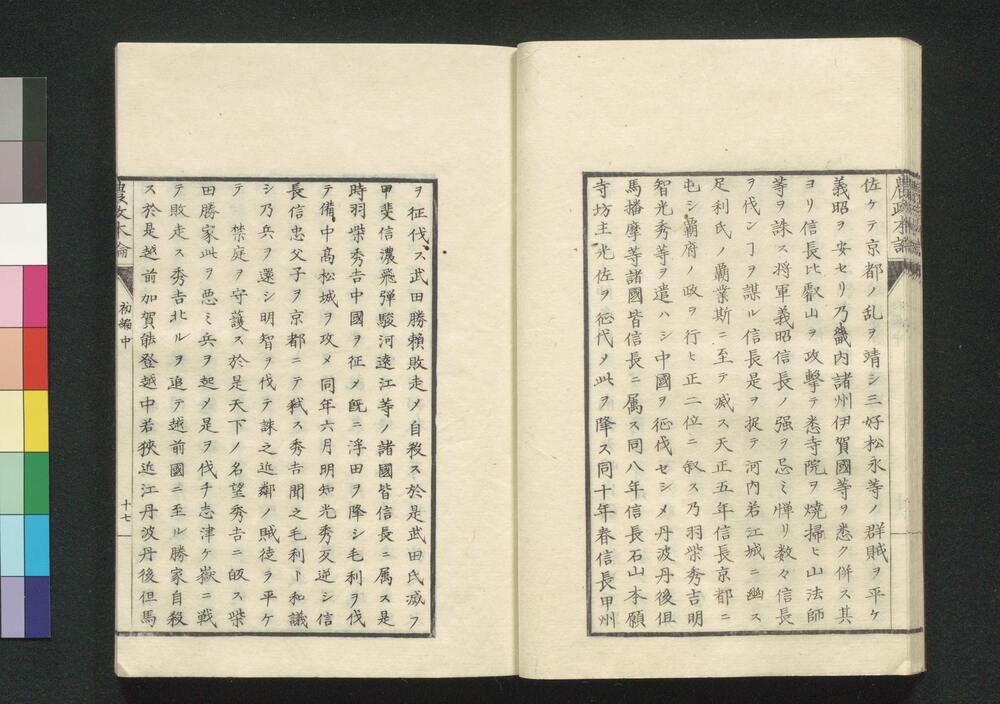 佐ケテ京都ノ乱ヲ靖シ三好松永等ノ群賊ヲ平ケ
義昭ヲ安セリ乃畿内諸州伊賀國等ヲ悉ク併ス其
ヨリ信長比叡山ヲ攻撃テ悉寺院ヲ焼掃ヒ山法師
等ヲ誅ス将軍義昭信長ノ强ヲ忌ミ憚リ数々信長
ヲ伐ンヿヲ謀ル信長是ヲ捉テ河内若江城ニ幽ス
足利氏ノ覇業斯ニ至テ滅ス天正五年信長京都ニ
屯シ覇府ノ政ヲ行ヒ正二位ニ叙ス乃羽柴秀吉明
智光秀等ヲ遣ハシ中國ヲ征伐セシメ丹波丹後但
馬播摩等諸國皆信長ニ属ス同八年信長石山本願
寺坊主光佐ヲ征伐メ此ヲ降ス同十年春信長甲州
ヲ征伐ス武田勝頼敗走メ自殺ス於是武田氏滅フ
甲斐信濃飛弾駿河遠江等ノ諸國皆信長ニ属ス是
時羽柴秀吉中國ヲ征メ既ニ浮田ヲ降シ毛利ヲ伐
テ備中高松城ヲ攻メ同年六月明知光秀叛逆シ信
長信忠父子ヲ京都ニテ弑ス秀吉聞之毛利ト和議
シ乃兵ヲ還シ明智ヲ伐テ誅之近鄰ノ賊徒ヲ平ケ
テ 禁庭ヲ守護ス於是天下ノ名望秀吉ニ皈ス柴
田勝家此ヲ悪ミ兵ヲ起メ是ヲ伐チ志津ケ嶽ニ戦
テ敗走ス秀吉北ルヲ追テ越前國ニ至ル勝家自殺
ス於是越前加賀能登越中若狹近江丹波丹後但馬
農政本論
初編中
十七